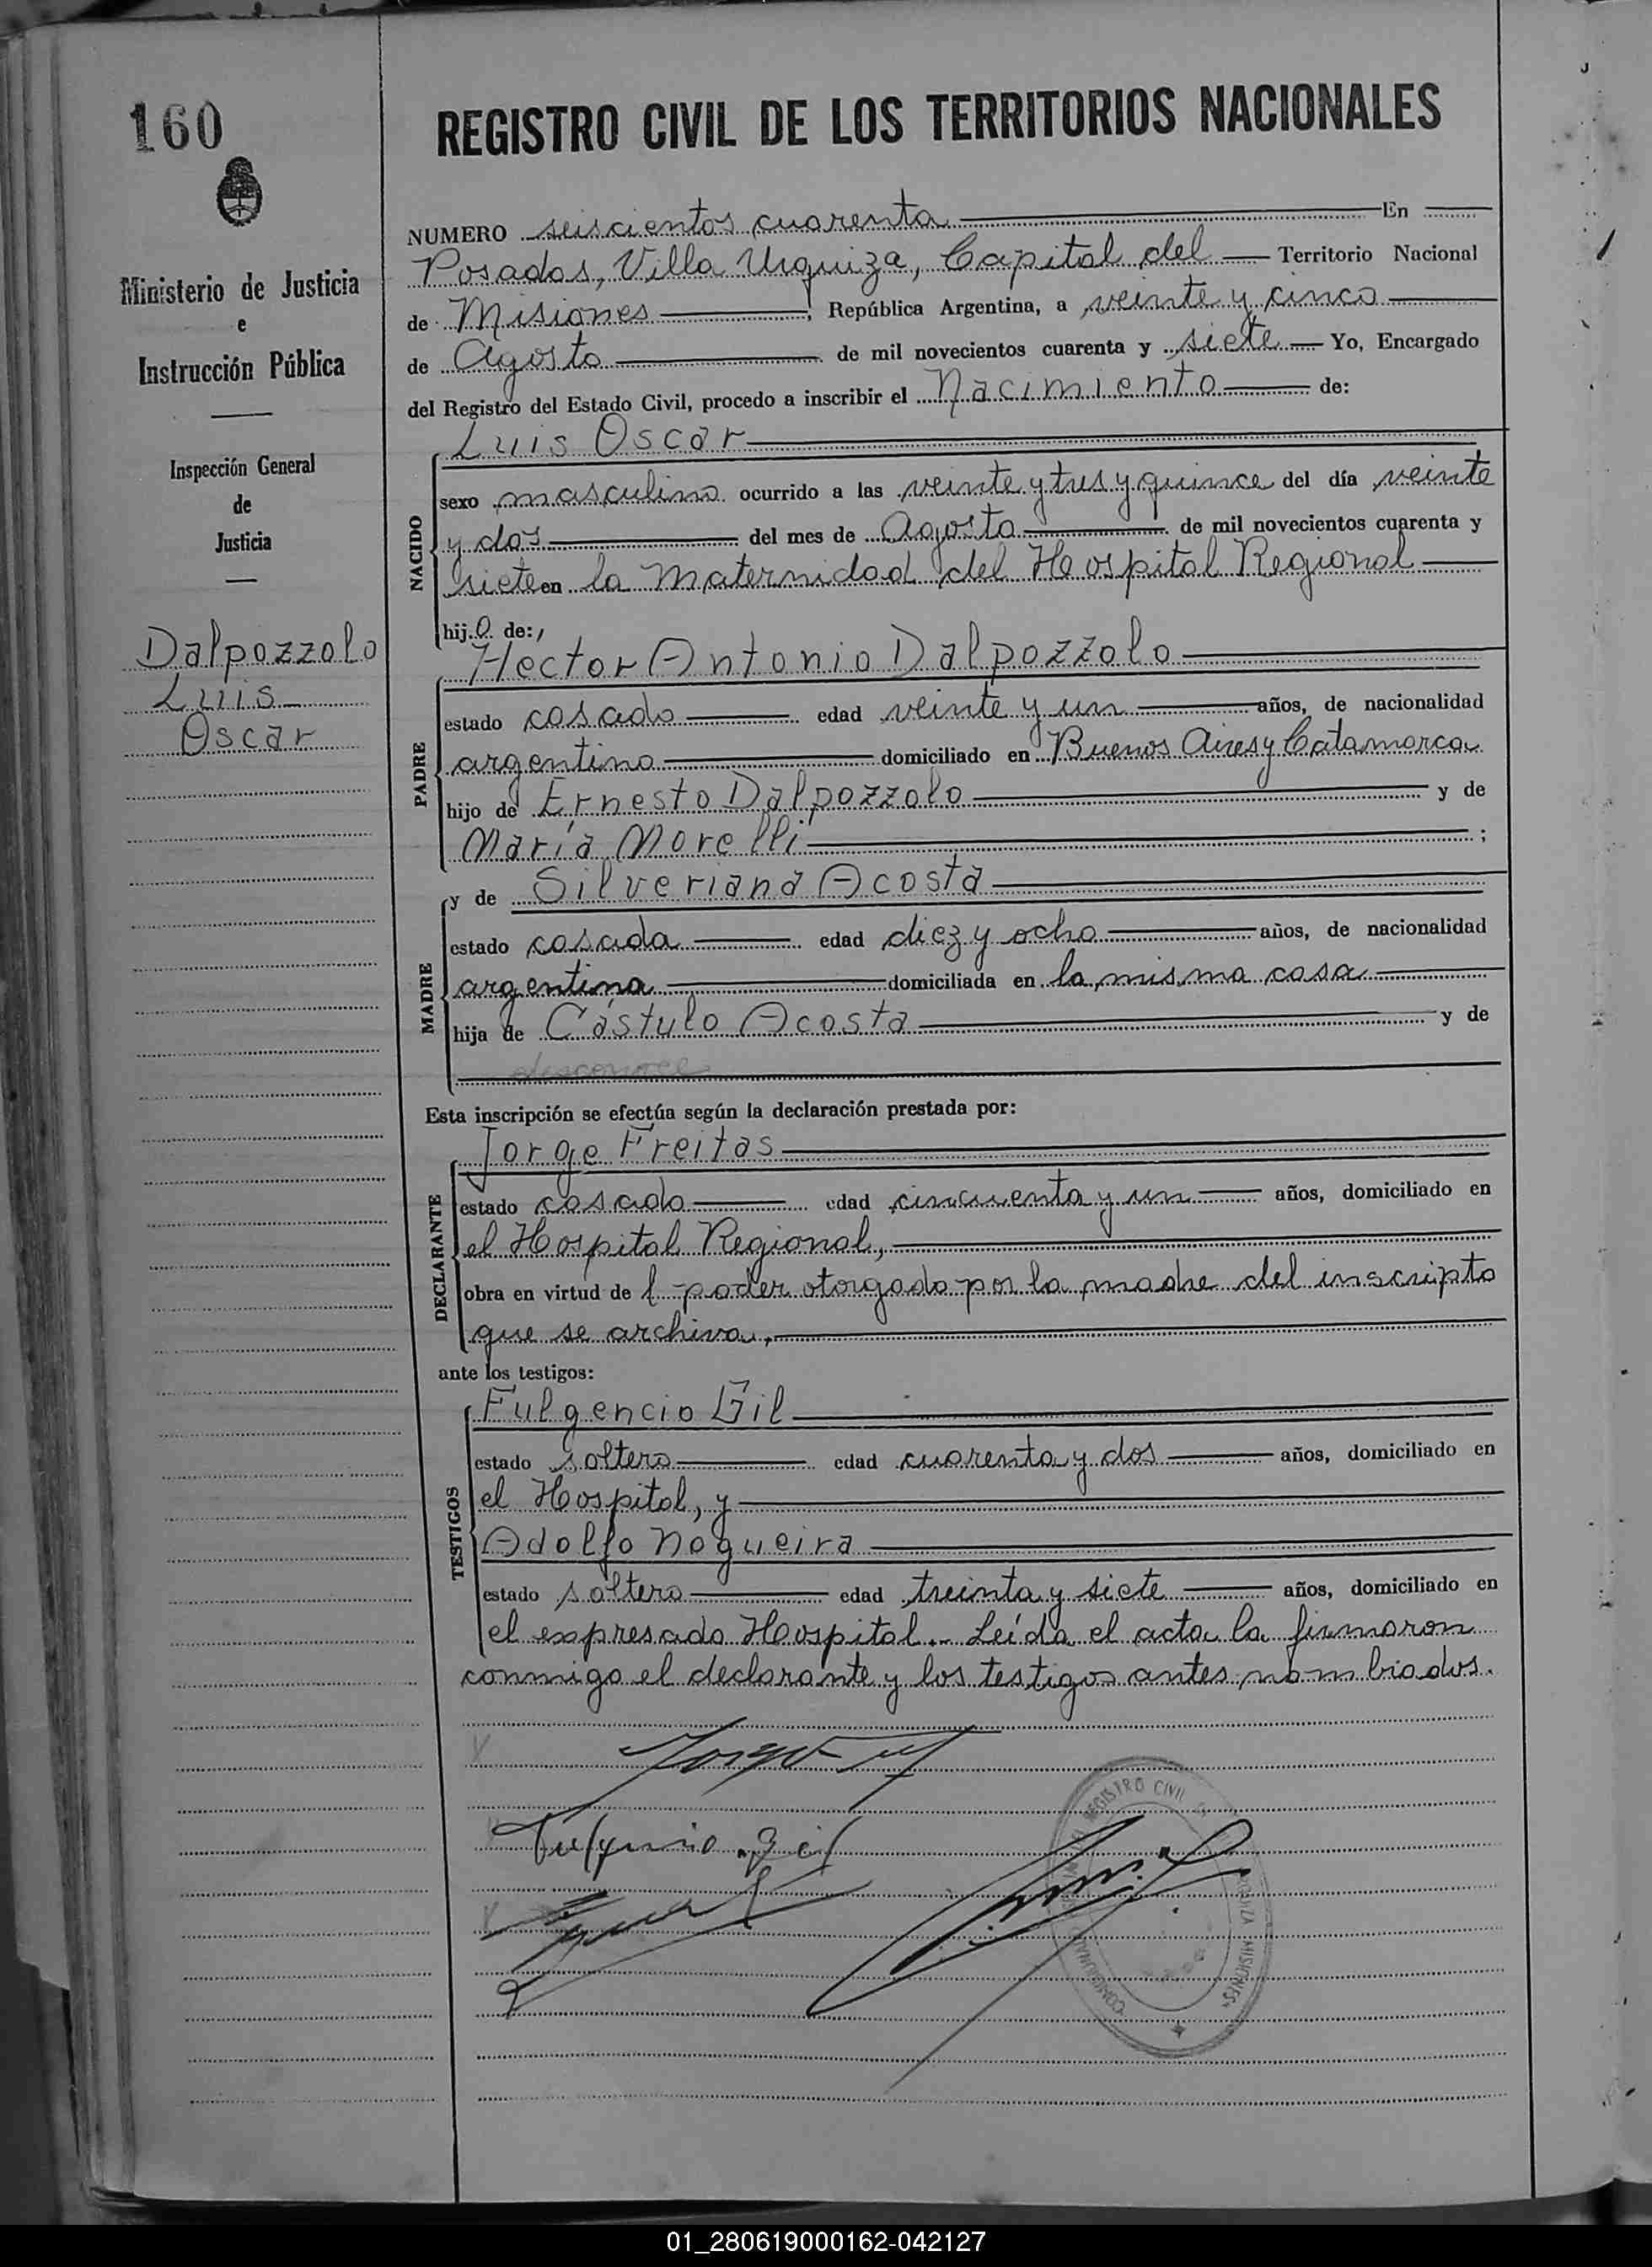 160
REGISTRO CIVIL DE LOS TERRITORIOS NACIONALES
Ministerio de Justicia
e
Instrucción Pública
Inspección General
de
Justicia
Dalpozzolo
Luis
Oscar
NUMERO seiscientos cuarenta En
Posadas, Villa Urquiza, Capital del Territorio Nacional
de Misiones, República Argentina, a veinte y cinco
de Agosto de mil novecientos cuarenta y siete Yo, Encargado
del Registro del Estado Civil, procedo a inscribir el Nacimiento de:
Luis Oscar
NACIDO
sexo masculino ocurrido a las veinte y tres y quince del día veinte
y dos del mes de Agosto de mil novecientos cuarenta y
siete en la Maternidad del Hospital Regional
hijo de:
Héctor Antonio Dalpozzolo
PADRE
estado casado edad veinte y un años, de nacionalidad
argentino domiciliado en Buenos Aires y Catamarca
hijo de Ernesto Dalpozzolo y de
María Morelli ;
y de Silveriana Acosta
MADRE
estado casada edad diez y ocho años, de nacionalidad
argentina domiciliada en la misma casa
hija de Cástulo Acosta y de
desconoce
Esta inscripción se efectúa según la declaración prestada por:
Jorge Freitas
DECLARANTE
estado casado edad cincuenta y un años, domiciliado en
el Hospital Regional,
obra en virtud del poder otorgado por la madre del inscripto
que se archiva,
ante los testigos:
Fulgencio Gil
TESTIGOS
estado soltero edad cuarenta y dos años, domiciliado en
el Hospital, y
Adolfo Nogueira
estado soltero edad treinta y siete años, domiciliado en
el expresado Hospital. Leída el acta la firmaron
conmigo el declarante y los testigos antes nombrados.
Fulgencio Gil
REGISTRO CIVIL
MISIONES
01_280619000162-042127